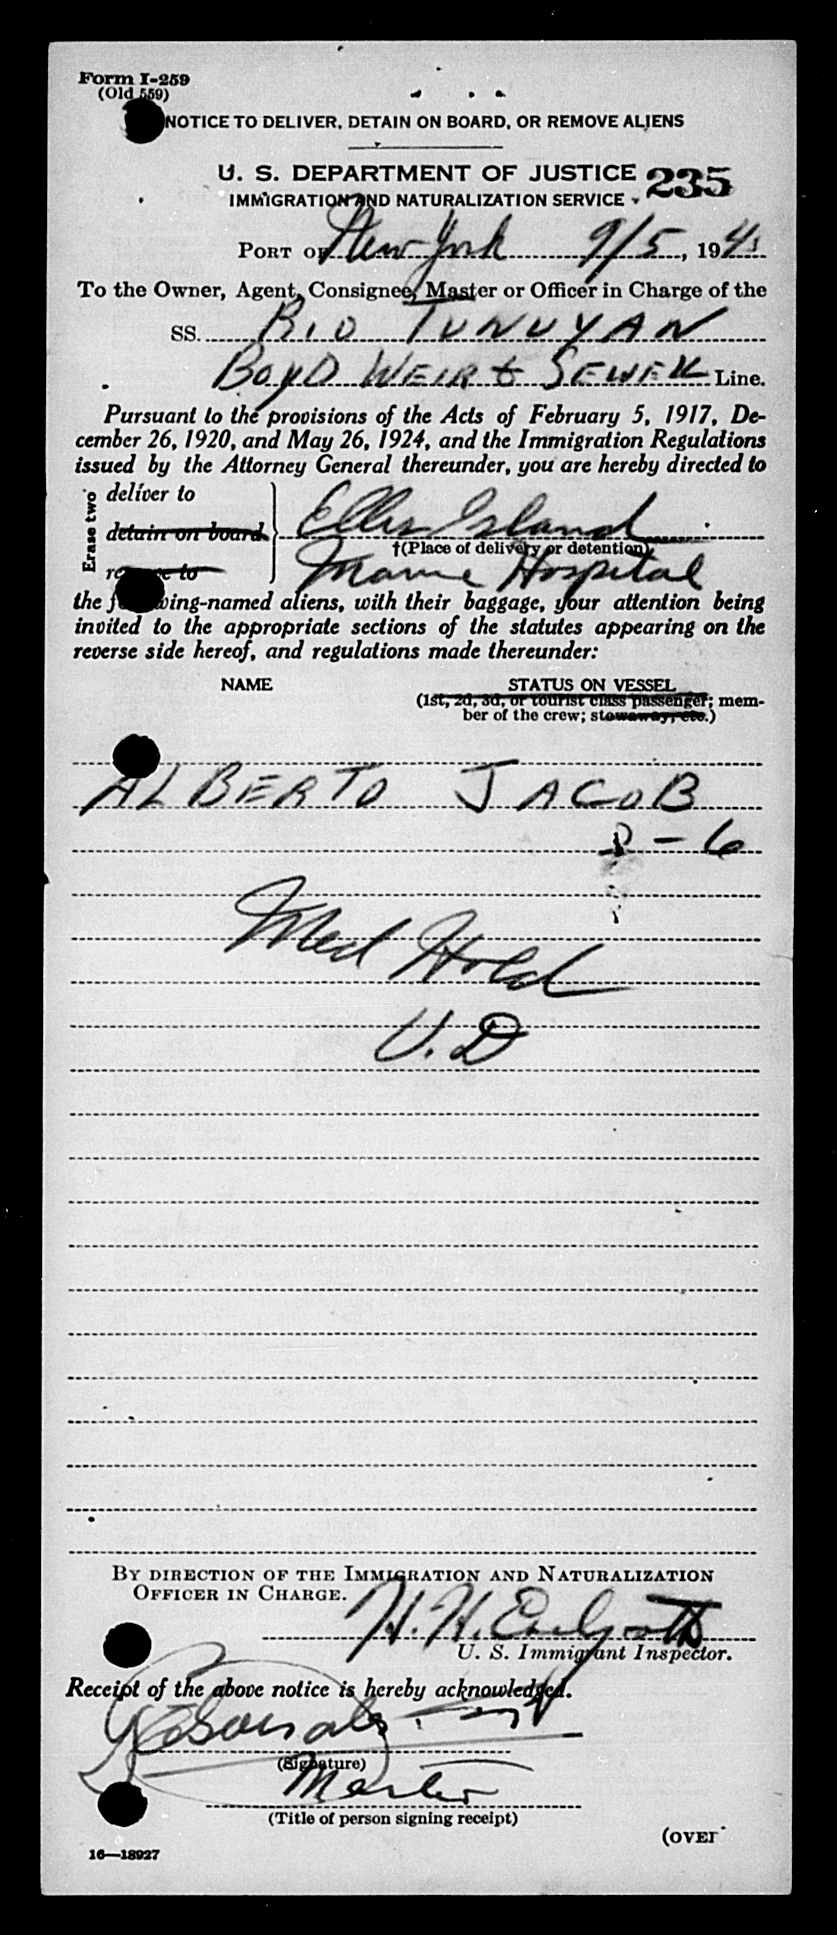 Form I-259
(Old 559)
NOTICE TO DELIVER, DETAIN ON BOARD, OR REMOVE ALIENS
U. S. DEPARTMENT OF JUSTICE
IMMIGRATION AND NATURALIZATION SERVICE
235
PORT OF New York 9/5, 194
To the Owner, Agent, Consignee, Master or Officer in Charge of the
SS. RIO TUNUYAN
BOYD WEIR & SEWELL Line.
Pursuant to the provisions of the Acts of February 5, 1917, De-
cember 26, 1920, and May 26, 1924, and the Immigration Regulations
issued by the Attorney General thereunder, you are hereby directed to
Erase two
deliver to
detain on board
remove to
Ellis Island
†(Place of delivery or detention)
Marine Hospital
the following-named aliens, with their baggage, your attention being
invited to the appropriate sections of the statutes appearing on the
reverse side hereof, and regulations made thereunder:
NAME
STATUS ON VESSEL
(1st, 2d, 3d, or tourist class passenger; mem-
ber of the crew; stowaway, etc.)
ALBERTO JACOB
- 6
Med Hold
V.D
BY DIRECTION OF THE IMMIGRATION AND NATURALIZATION
OFFICER IN CHARGE.
H. H.
U. S. Immigrant Inspector.
Receipt of the above notice is hereby acknowledged.
(Signature)
Master
(Title of person signing receipt)
(OVER
16—18927